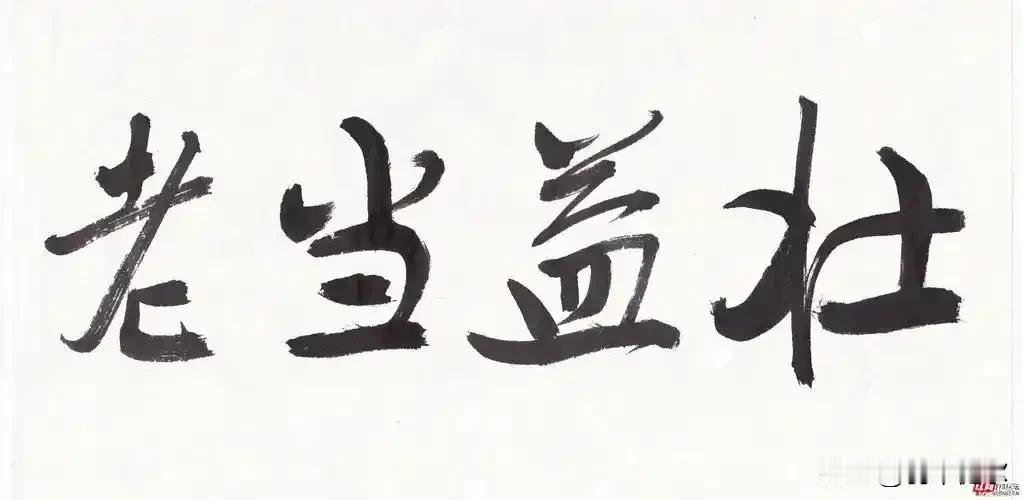 老当益壮